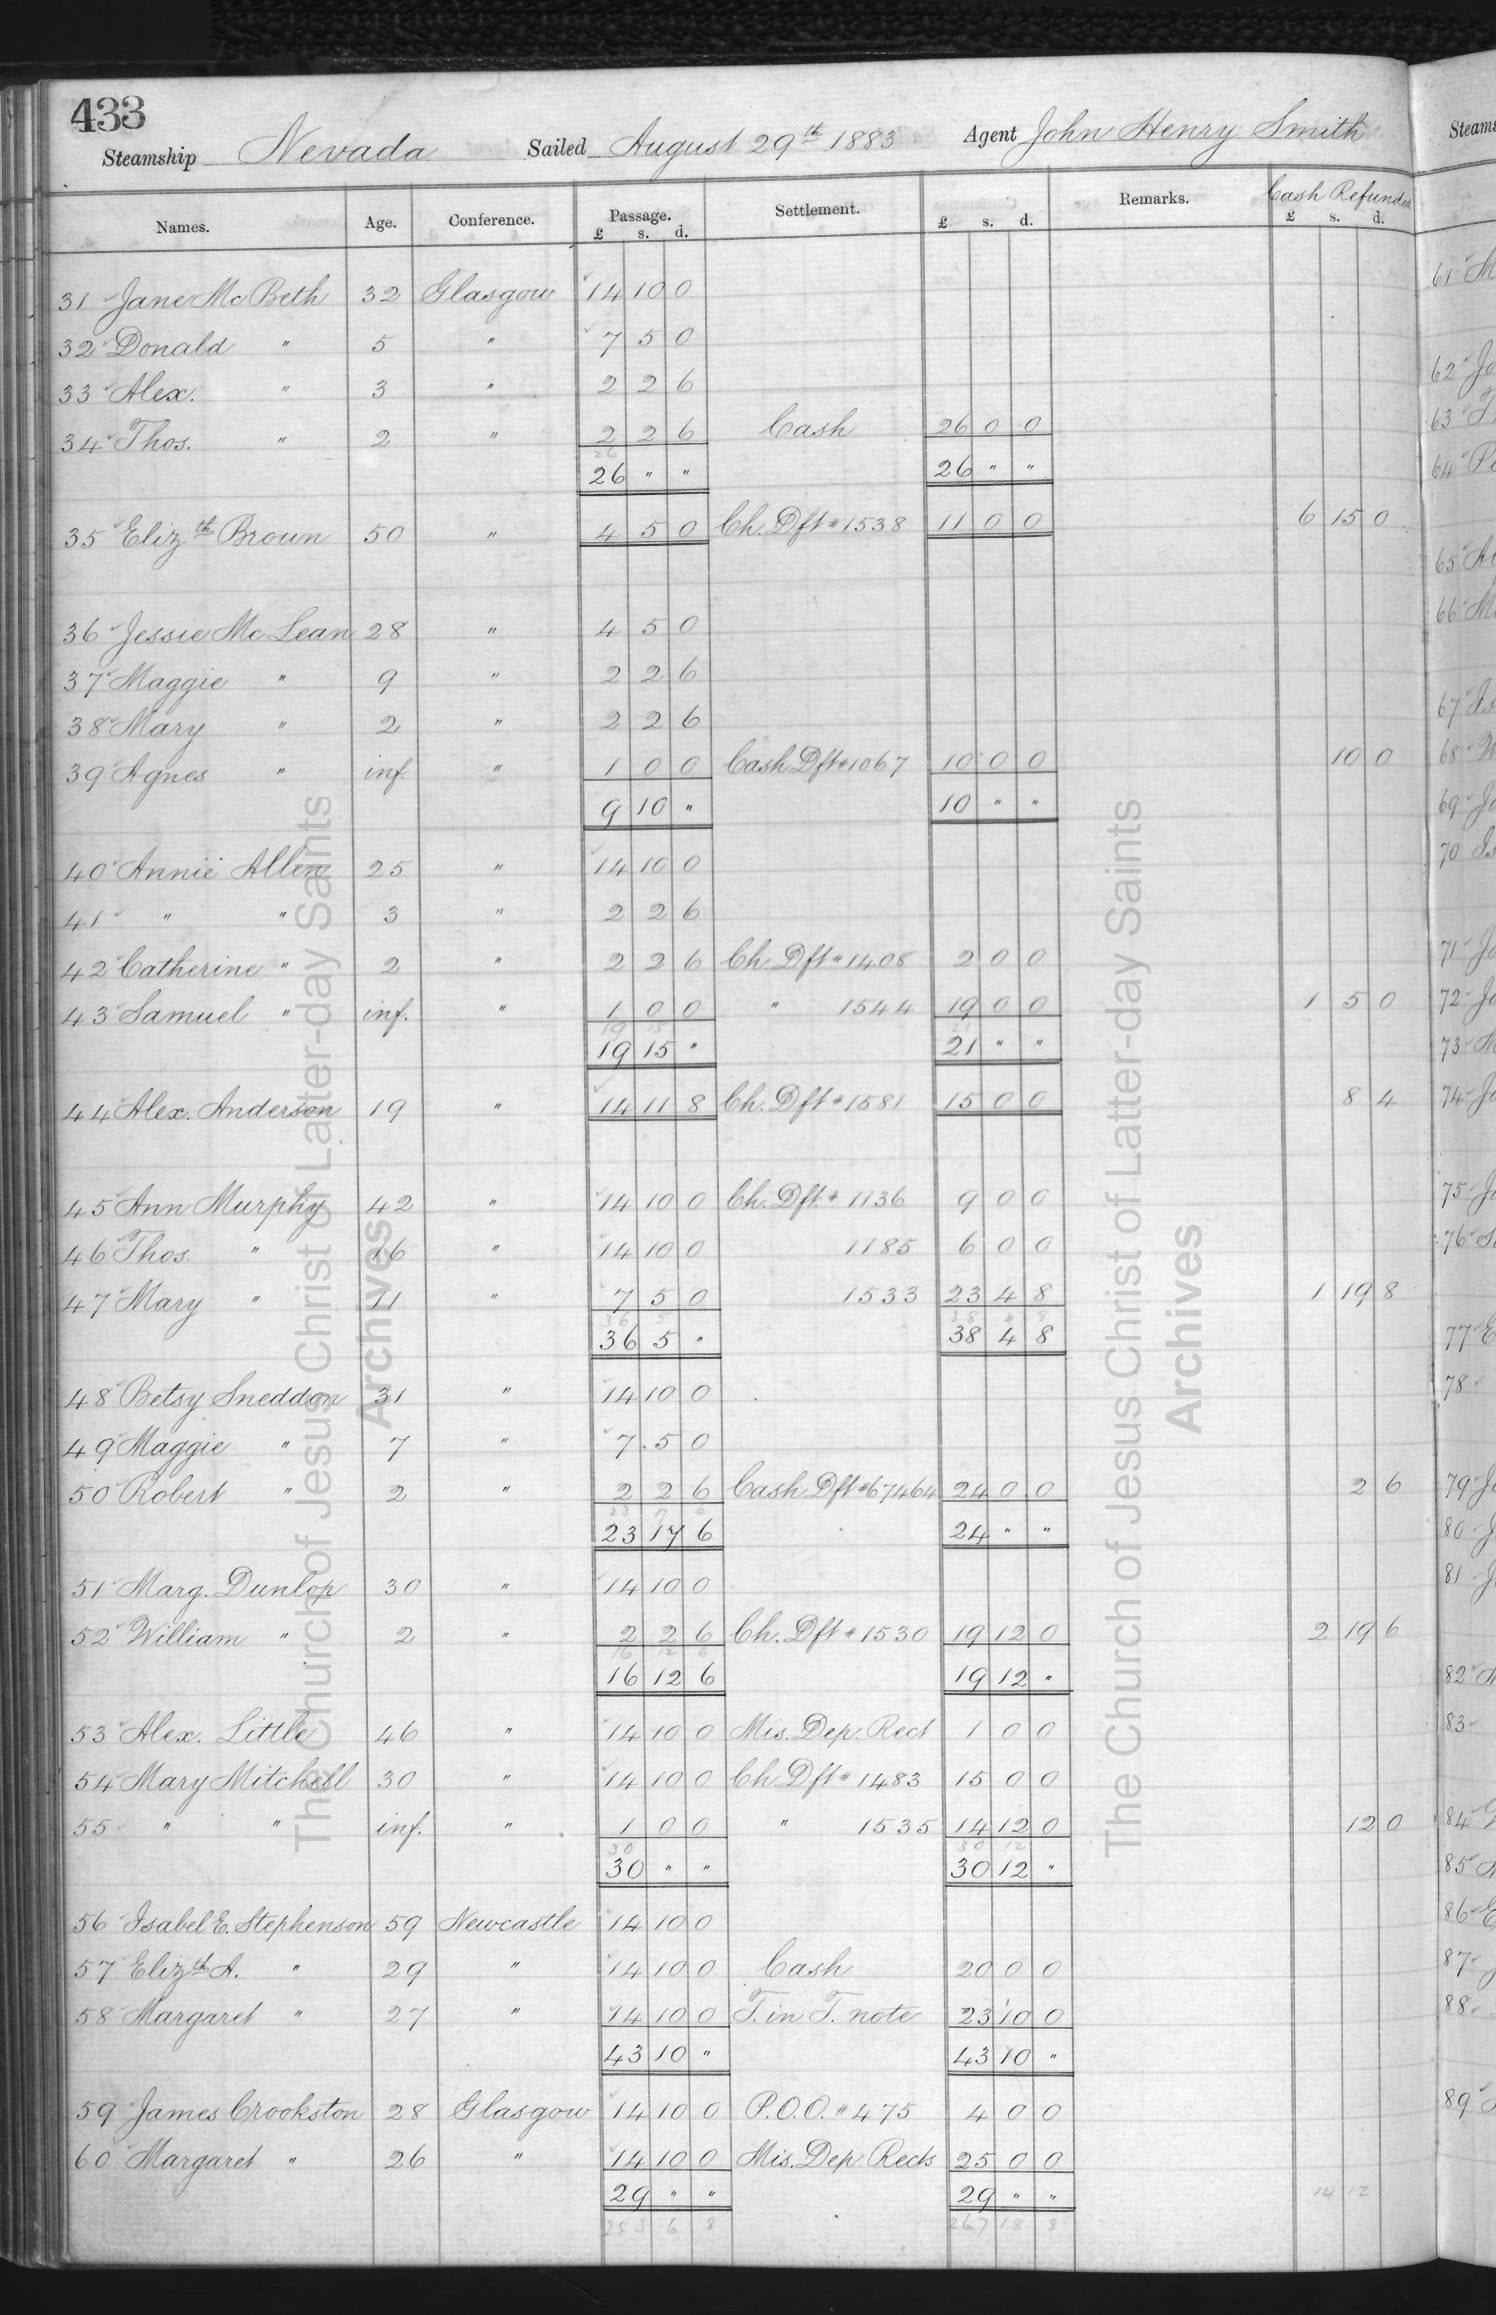 433
Steamship Nevada Sailed August 29th 1883 Agent John Henry Smith
Names. Age. Conference. Passage. £ s. d. Settlement. £ s. d. Remarks. Cash Refunded £ s. d.
31 Jane McBeth 32 Glasgow 14 10 0
32 Donald " 5 " 7 5 0
33 Alex. " 3 " 2 2 6
34 Thos. " 2 " 2 2 6 Cash 26 0 0
26 " " 26 " "
35 Elizth Brown 50 " 4 5 0 Ch. Dft # 1538 11 0 0 6 15 0
36 Jessie McLean 28 " 4 5 0
37 Maggie " 9 " 2 2 6
38 Mary " 2 " 2 2 6
39 Agnes " inf. " 1 0 0 Cash Dft # 1067 10 0 0 10 0
9 10 " 10 " "
40 Annie Allen 25 " 14 10 0
41 " " 3 " 2 2 6
42 Catherine " 2 " 2 2 6 Ch. Dft # 1408 2 0 0
43 Samuel " inf. " 1 0 0 " 1544 19 0 0 1 5 0
19 15 " 21 " "
44 Alex. Anderson 19 " 14 11 8 Ch. Dft # 1581 15 0 0 8 4
45 Ann Murphy 42 " 14 10 0 Ch. Dft # 1136 9 0 0
46 Thos. " 16 " 14 10 0 1185 6 0 0
47 Mary " 11 " 7 5 0 1533 23 4 8 1 19 8
36 5 " 38 4 8
48 Betsy Sneddon 31 " 14 10 0
49 Maggie " 7 " 7 5 0
50 Robert " 2 " 2 2 6 Cash Dft # 67464 24 0 0 2 6
23 17 6 24 " "
51 Marg. Dunlop 30 " 14 10 0
52 William " 2 " 2 2 6 Ch. Dft # 1530 19 12 0 2 19 6
16 12 6 19 12 "
53 Alex. Little 46 " 14 10 0 Mis. Dep. Rect 1 0 0
54 Mary Mitchell 30 " 14 10 0 Ch. Dft # 1483 15 0 0
55 " " inf. " 1 0 0 " 1535 14 12 0 12 0
30 " " 30 12 "
56 Isabel E. Stephenson 59 Newcastle 14 10 0
57 Elizth A. " 29 " 14 10 0 Cash 20 0 0
58 Margaret " 27 " 14 10 0 T. in T. note 23 10 0
43 10 " 43 10 "
59 James Crookston 28 Glasgow 14 10 0 P.O.O. # 475 4 0 0
60 Margaret " 26 " 14 10 0 Mis. Dep. Rects 25 0 0
29 " " 29 " " 14 12
253 6 8 267 18 8
The Church of Jesus Christ of Latter-day Saints
Archives
The Church of Jesus Christ of Latter-day Saints
Archives